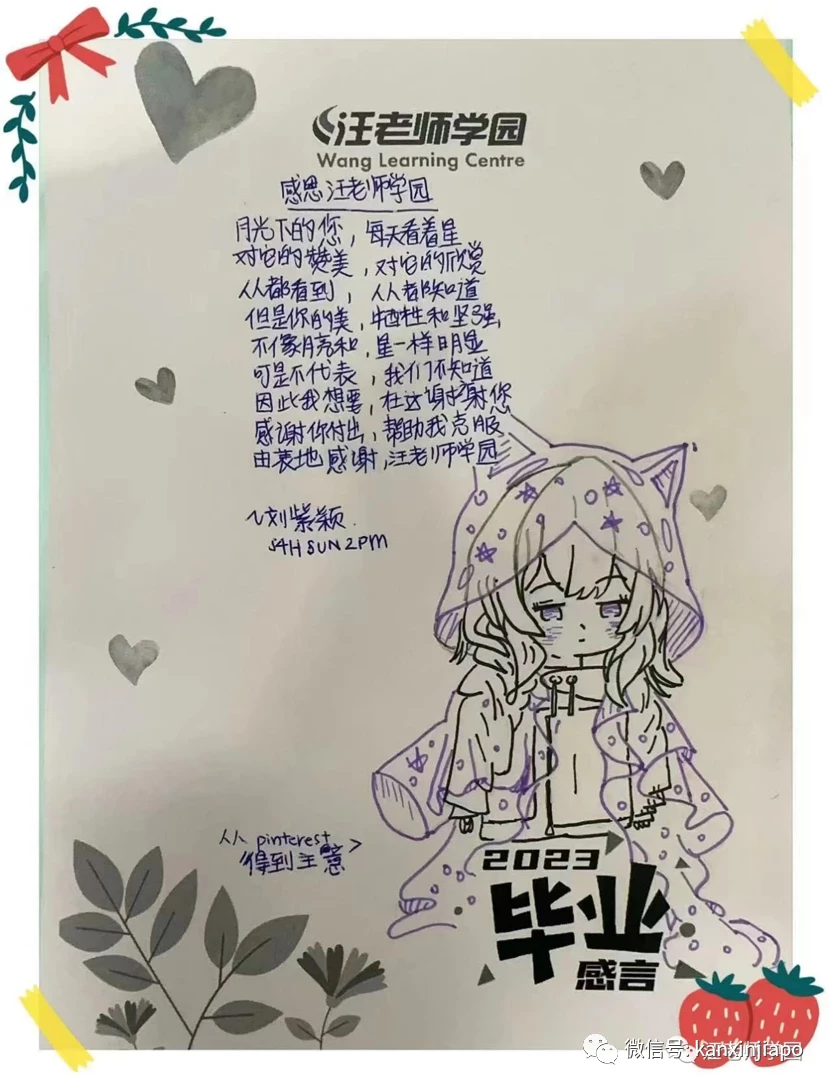 汪老师学园
Wang Learning Centre
感恩汪老师学园
月光下的您，每天看着星
对它的赞美，对它的欣赏
人人都看到，人人都知道
但是你的美，牺牲和坚强
不像月亮和，星一样明显
可是不代表，我们不知道
因此我想要，在这谢谢您
感谢你付出，帮助我克服
由衷地感谢，汪老师学园
~刘紫颖.
S4H SUN 2PM
从 pinterest
得到主意 >
2023
毕业
感言
微信号: kanxinjiapo
汪老师学园